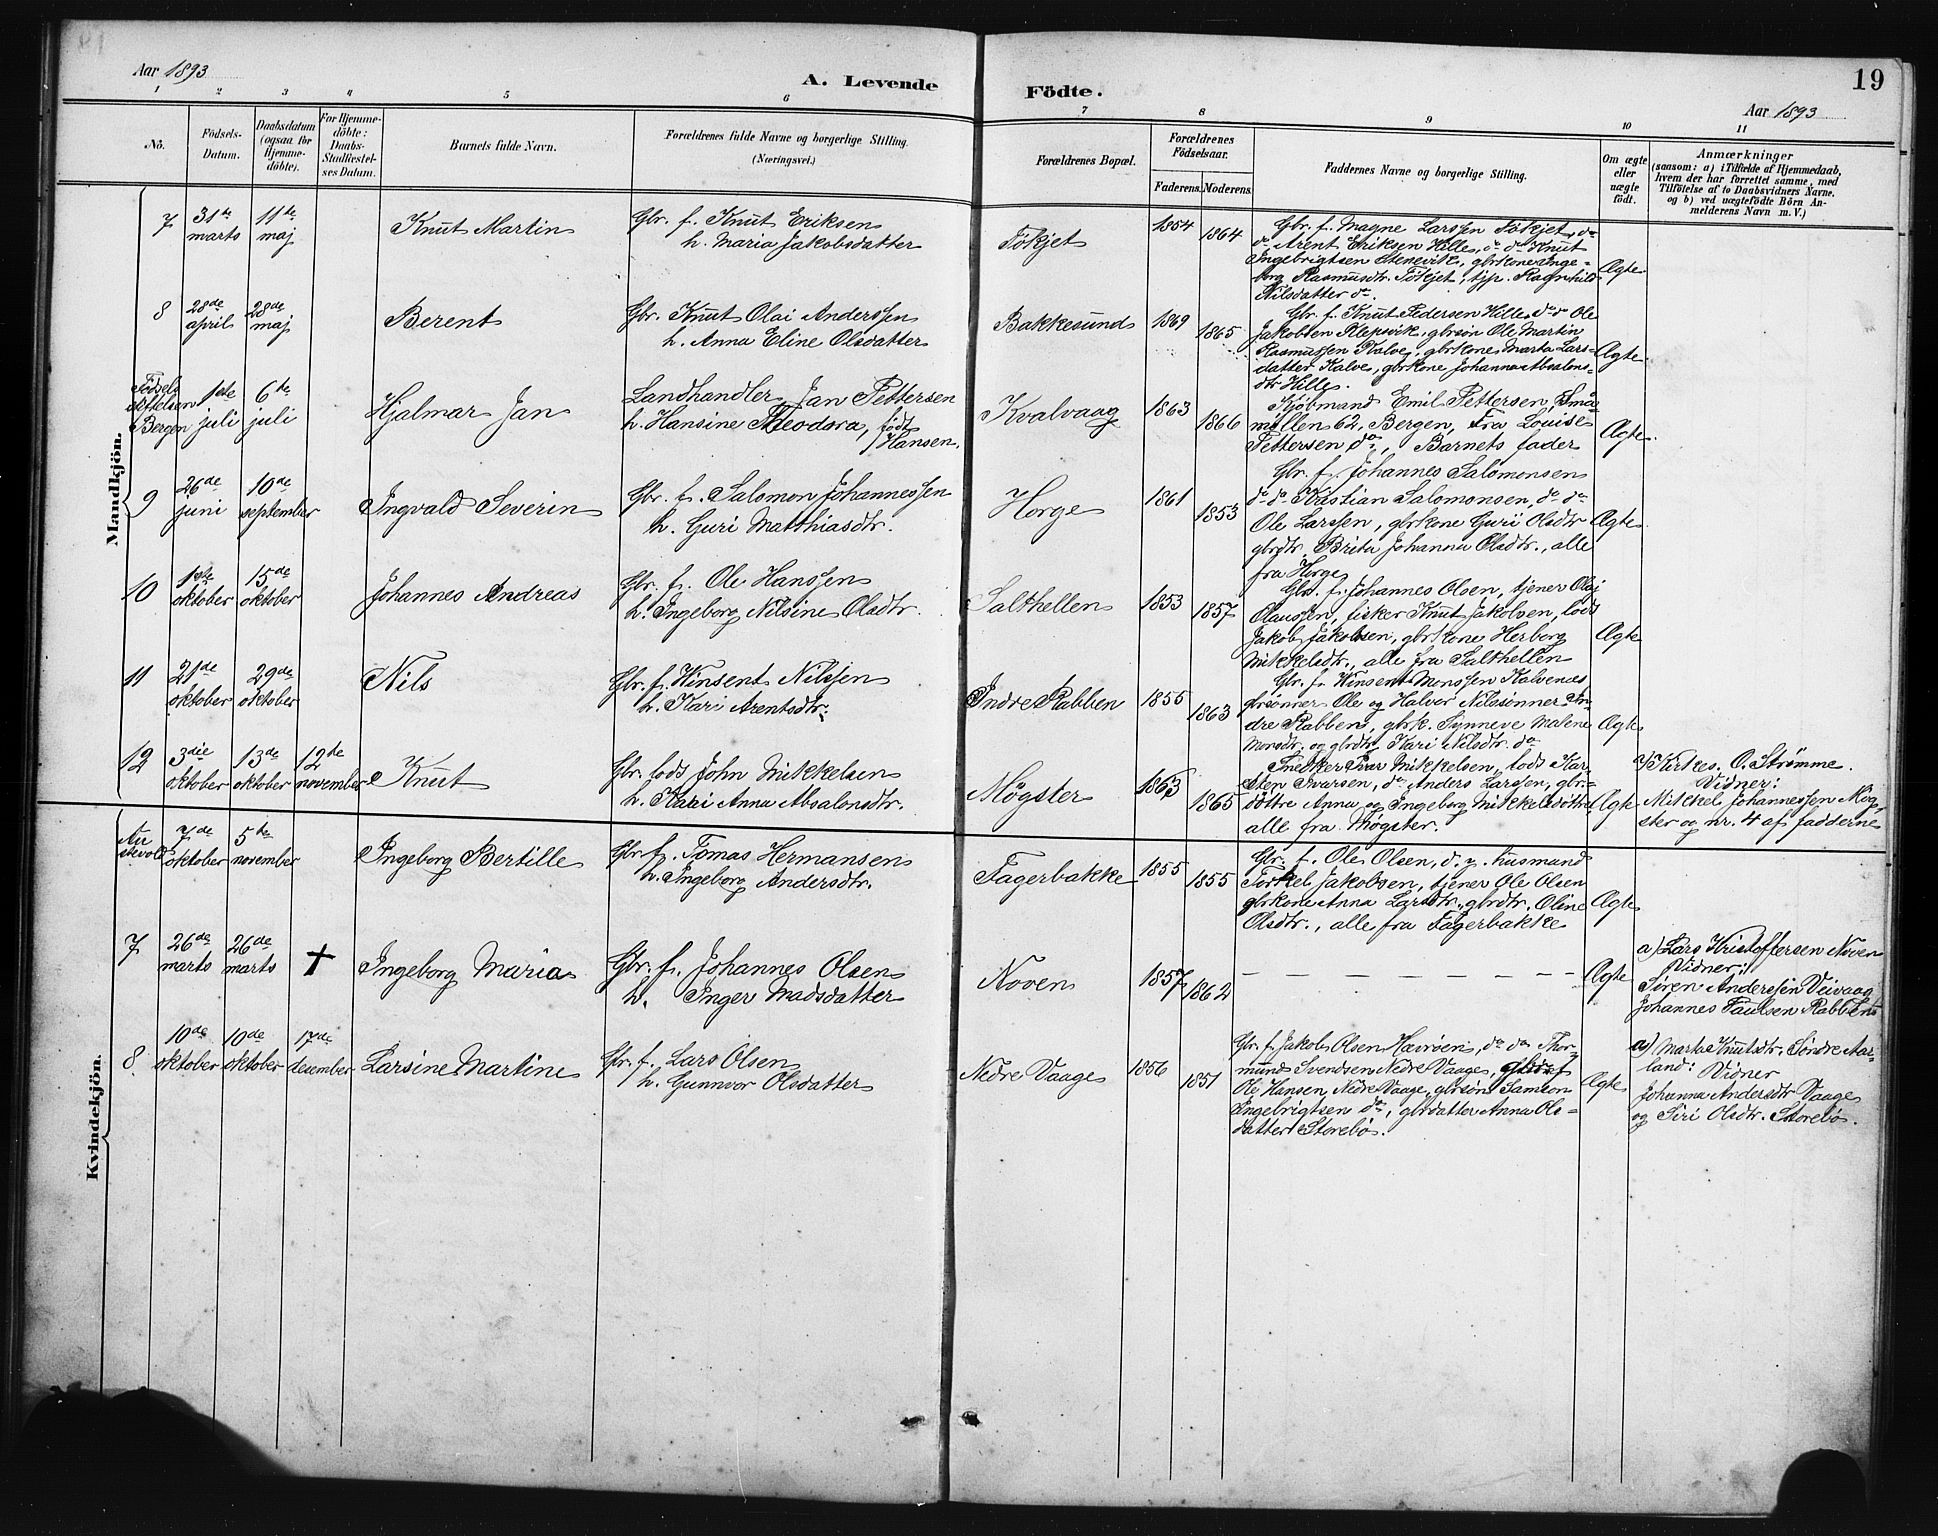 Aar 1893
A. Levende
Födte.
19
Aar 1893
1 2 3 4 5 6 7 8 9 10 11
No.
Födsels-
Datum.
Daabsdatum
(ogsaa for
Hjemme-
döbte).
For Hjemme-
döbte:
Daabs-
Stadfæstel-
ses Datum.
Barnets fulde Navn.
Forældrenes fulde Navne og borgerlige Stilling.
(Næringsvei.)
Forældrenes Bopæl.
Forældrenes
Födselsaar.
Faderens. Moderens.
Faddernes Navne og borgerlige Stilling.
Om ægte
eller
uægte
födt.
Anmærkninger
(saasom: a) i Tilfælde af Hjemmedaab,
hvem der har forrettet samme, med
Tilföielse af to Daabsvidners Navne,
og b) ved uægtefödte Börn An-
melderens Navn m. V.)
Mandkjön.
7
31te
marts
11te
maj
Knut Martin
Gbr. f. Knut Eriksen
h. Maria Jakobsdatter
Tökjet
1854
1864
Gbr. f. Magne Larssen Tökjet, do
do Arent Eriksen Hille, do do Knut
Ingebrigtsen Stenevik, gbrkone Inge-
borg Rasmusdtr. Tökjet, tjp. Ragnhild
Nilsdatter do.
Ægte
8
28de
april
28de
maj
Berent
Gbr. Knut Olai Anderssen
h. Anna Eline Olsdatter
Bakkesund
1869
1865
Gbr. f. Knut Pedersen Hille, do do Ole
Jakobsen Klepsvik, gbrsön Ole Martin
Rasmussen Kalve, gbrkone Marta Lars-
datter Kalve, gbrkone Johanna Absalons-
dtr Hille.
Ægte
Födsels
Bergen
1ste
juli
6te
juli
Hjalmar Jan
Landhandler Jan Pettersen
h. Hansine Theodora, födt
Hansen.
Kvalvaag
1863
1866
Kjöbmand Emil Pettersen, Små-
möllen 62, Bergen, Fra Louise
Pettersen do, Barnets fader
Ægte
9
26de
juni
10de
september
Ingvald Severin
Gbr. f. Salomon Johannessen
h. Guri Matthiasdtr.
Horge
1861
1853
Gbr. f. Johannes Salomonsen
do do Kristian Salomonsen, do do
Ole Larssen, gbrkone Guri Olsdtr
gbrdtr. Brita Johanna Olsdtr., alle
fra Horge
Ægte
10
1ste
oktober
15de
oktober
Johannes Andreas
Gbr. f. Ole Hanssen
h. Ingeborg Nilsine Olsdtr.
Salthellen
1853
1857
Gbr. f. Johannes Olsen, tjener Olai
Olaussen, fisker Knut Jakobsen, lods
Jakob Jakobsen, gbrkone Herborg
Mikkelsdtr., alle fra Salthellen
Ægte
11
21de
oktober
29de
oktober
Nils
Gbr. f. Winsent Nilssen
h. Kari Arentsdtr.
Indre Rabben
1855
1863
Gbr. f. Winsent Monssen Kalvenæs
gbrsönner Ole og Halvor Nilssönner In-
dre Rabben, gbrk. Synneve Malene
Monsdtr. og gbrdtr. Kari Nilsdtr. do
Ægte
12
3die
oktober
13de
oktober
12de
november
Knut
Gbr. lods John Mikkelsen
h. Kari Anna Absalonsdtr.
Møgster
1863
1865
Snedker Per Mikkelsen, lods Kar-
sten Ivarsen, do Anders Larssen, gbr-
döttre Anna og Ingeborg Mikkelsdöttre
alle fra Møgster.
Ægte
Kirkes. O. Strømme.
Vidner:
Mikkel Johannessen Møg-
ster og nr. 4 af fadderne
Kvindekjön.
Au
stevold
7de
oktober
5te
november
Ingeborg Bertille
Gbr. f. Tomas Hermansen
h. Ingeborg Andersdtr.
Fagerbakke
1855
1855
Gbr. f. Ole Olsen, d. y. husmand
Torkel Jakobsen, tjener Ole Olsen
gbrkone Anna Larsdtr., gbrdtr. Oline
Olsdtr., alle fra Fagerbakke
Ægte
7
26de
marts
26de
marts
†
Ingeborg Maria
Gbr. f. Johannes Olsen
h. Inger Madsdatter
Noven
1857
1862
— — — — — — — —
Ægte
a) Lars Kristoffersen Noven
Vidner:
Søren Anderssen Veivaag
Johannes Paulsen Rabben
8
10de
oktober
10de
oktober
17de
desember
Larsine Martine
Gbr. f. Lars Olsen
h. Gunnvor Olsdatter
Nedre Vaage
1856
1851
Gbr. f. Jakob Olsen Hævröen, do do Thor-
mund Svendsen Nedre Vaage,
Ole Hansen Nedre Vaage, gbrsön Samson
Ingebrigtsen do, gbrdatter Anna Ols-
datter Storebö.
Ægte
a) Marta Knutsdtr. Söndre Aar-
land: Vidner
Johanna Andersdtr Vaage
og Siri Olsdtr. Storebö.